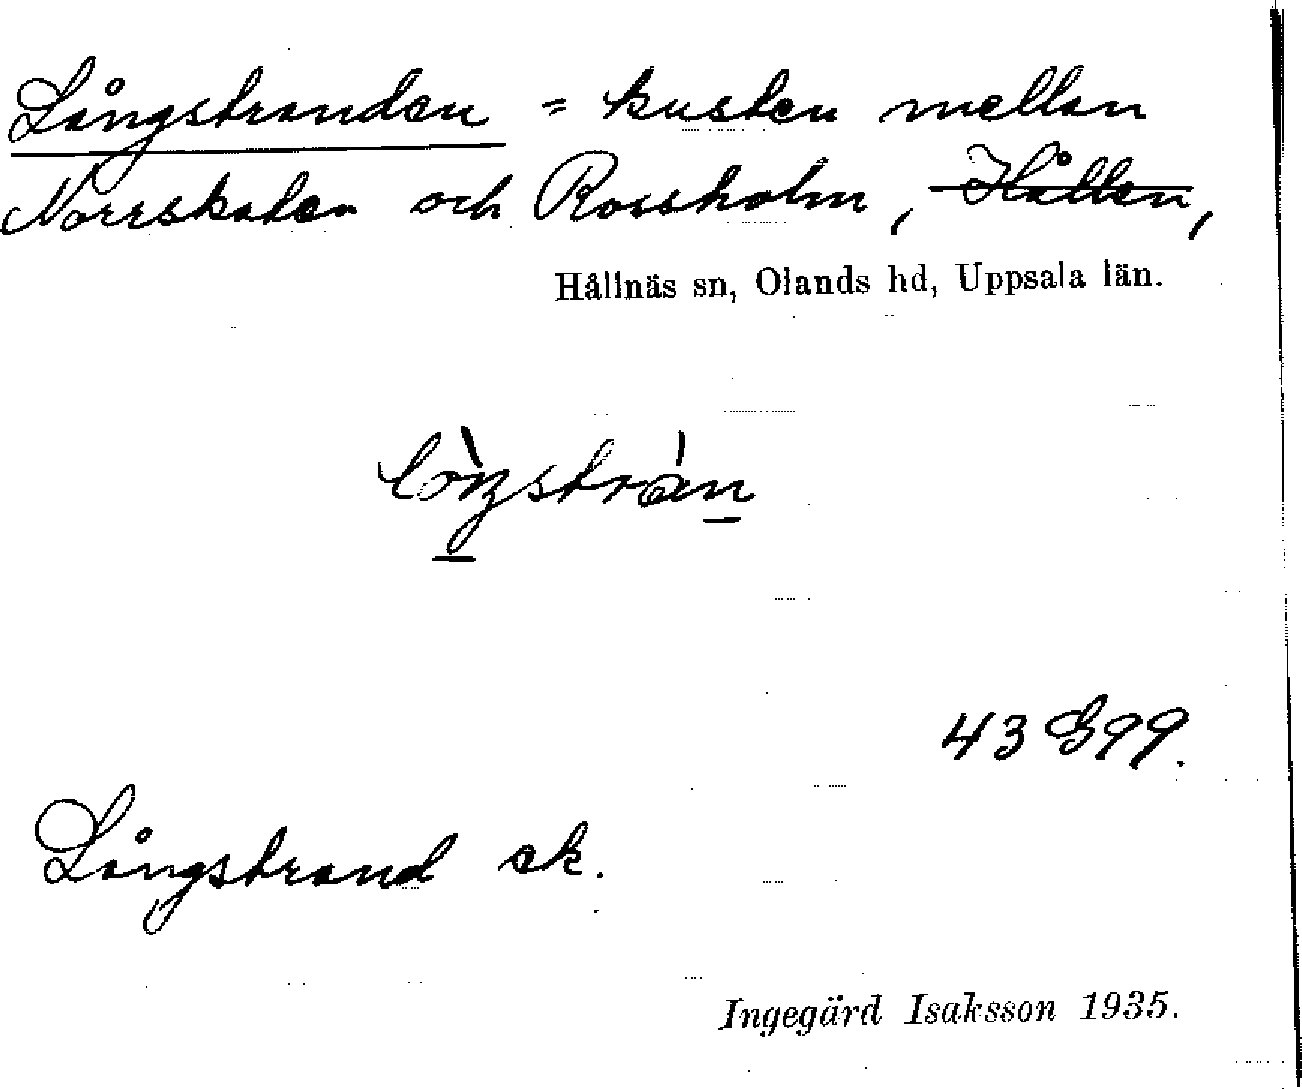 Långstranden = kusten mellan
Norrskaten och Rossholm, Hållen,
Hållnäs sn, Olands hd, Uppsala län.
43 G 99.
Långstrand ek.
Ingegärd Isaksson 1935.